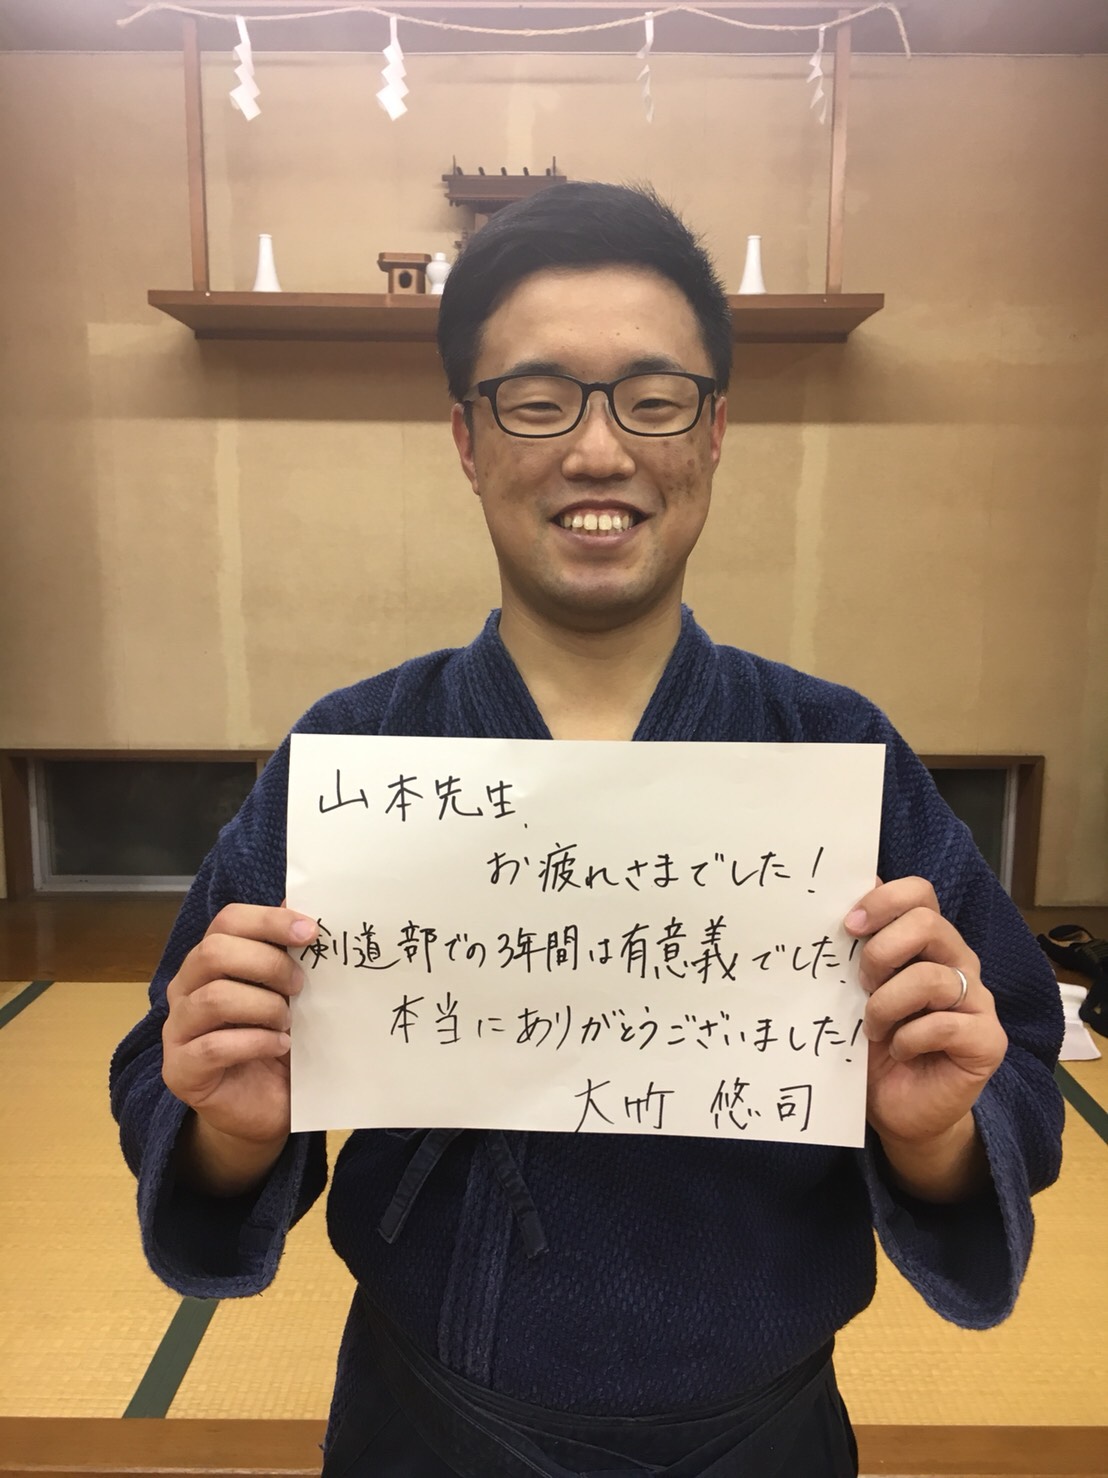 山本先生、
お疲れさまでした！
剣道部での3年間は有意義でした！
本当にありがとうございました！
大竹 悠司